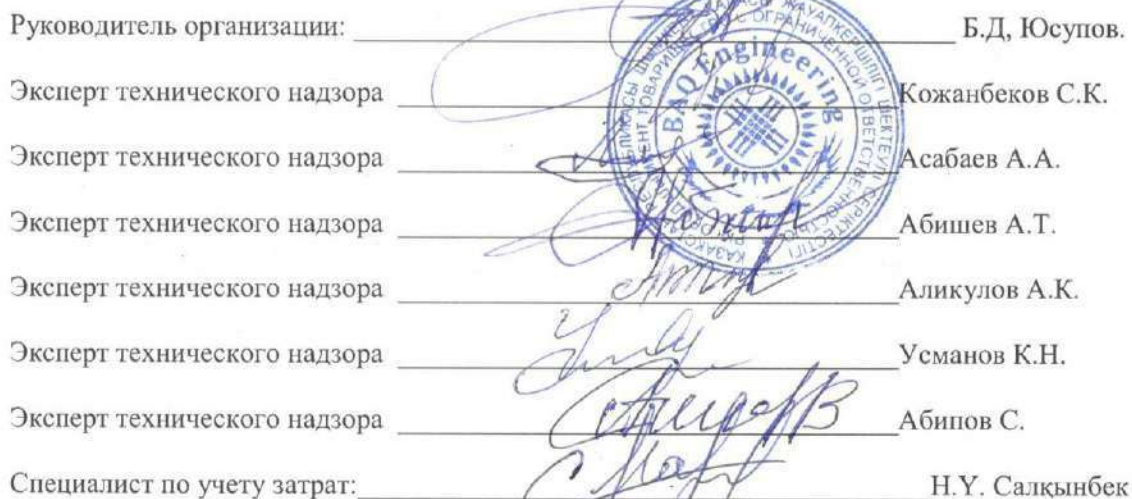 Руководитель организации: Б.Д, Юсупов.
BAQ Engineering
Эксперт технического надзора Кожанбеков С.К.
Эксперт технического надзора Асабаев А.А.
Эксперт технического надзора Абишев А.Т.
Эксперт технического надзора Аликулов А.К.
Эксперт технического надзора Усманов К.Н.
Эксперт технического надзора Абипов С.
Специалист по учету затрат: Н.Ү. Салқынбек